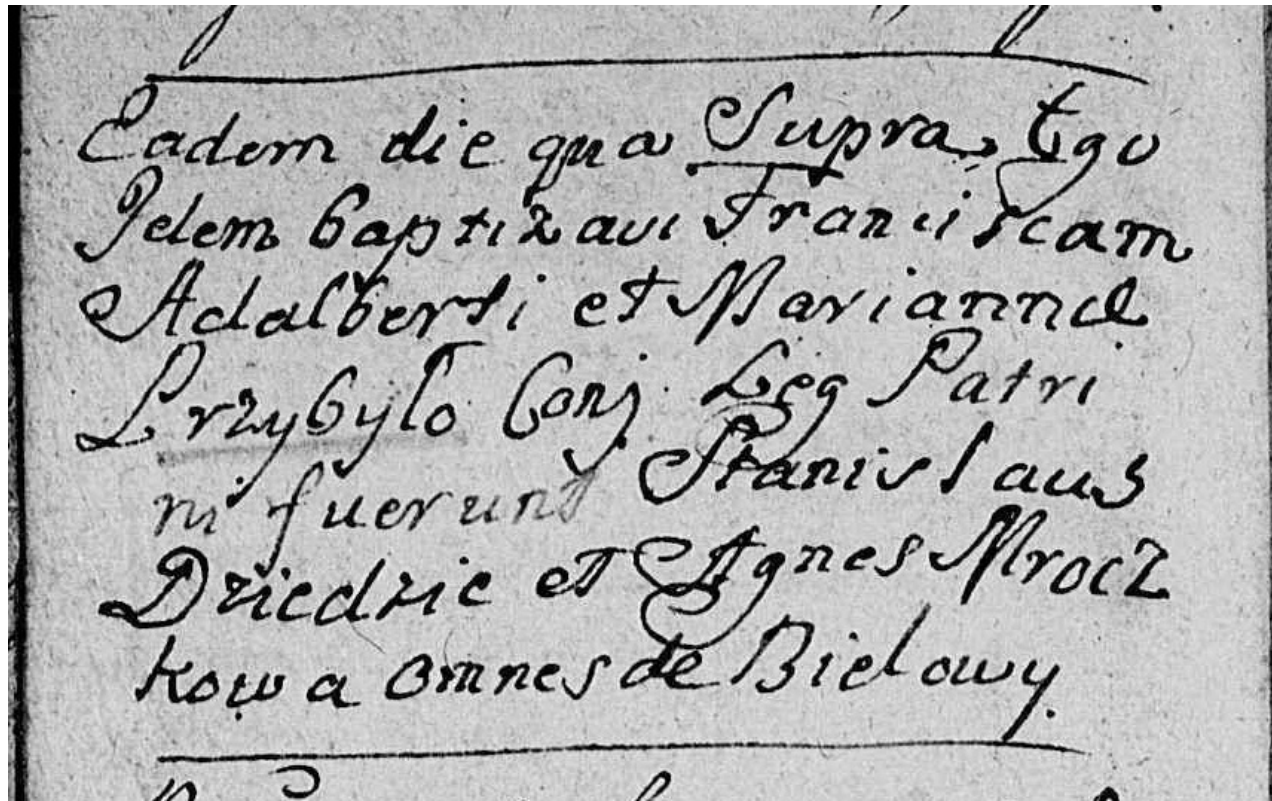 Eadem die qua Supra, Ego
Idem baptizavi Franciscam
Adalberti et Mariannæ
Przybyło Conj. Leg Patri
ni fuerunt Stanislaus
Dziedzic et Agnes Mrocz
kowa omnes de Bielowy.